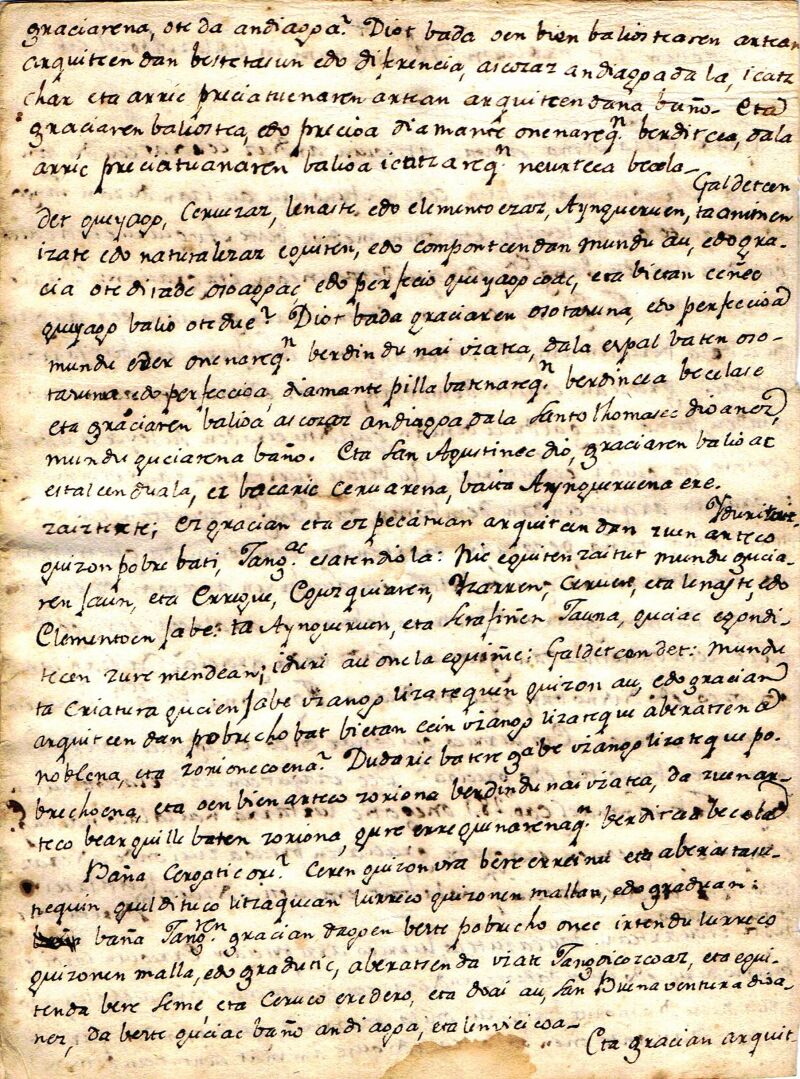 graciarena, ote da andiagoa? Diot bada oen bien baliostearen artean
arquitcen dan bestetasun edo diferencia, ascozaz andiagoa dala, icatz
char eta arric preciatuenaren artean arquitcen dana baño. Eta
graciaren baliostea, edo precioa diamante onenareqn berditcea, dala
arric preciatuanaren balioa icatzareqn neurtcea becela.
Galdetcen
det gueyago, Ceruezaz, lenaste, edo elementoezaz, Ayngueruen, ta animen
izate edo naturalezaz eguiten, edo componteen dan mundu au, edo gra-
cia ote ditade osoagoac, edo perfeccio gueyagocoac, eta bietan ceñec
gueyago balio ote due? Diot bada graciaren osotasuna, edo perfeccioa
mundu eder onenareqn berdindu nai izatea, dala ezpal baten oso-
tasuna edo perfeccioa, diamante pilla batenareqn berdincea becelase
eta graciaren balioa ascozaz andiagoa dala Santo Thomasec dioanez,
mundu guciarena baño. Eta San Agustinec dio, graciaren balioac
estalcen duala, ez bacaric ceruarena, baita Ayngueruena ere.
Yduri
zaizte; ez gracian eta ez pecatuan arquitcen dan zuen arteco
guizon pobre bati, Jangac esaten diola: Nic eguiten zaitut mundu gucia-
ren jaun, eta Erregue, Eguzquiaren, Yzarren, Ceruen, eta lenaste, edo
Elementoen jabe: ta Ayngueruen, eta Serafiñen Jauna, guciac egondi-
tecen zure mendean; iduri au onela eguiñic: Galdetcen det: mundu
ta criatura gucien jabe izango lizatequen guizon au, edo gracian
arquitcen dan pobrecho bat bietan cein izango lizateque aberatsena
noblena, eta zorionecoena? Dudaric batere gabe izango lizateque po-
brechoena, eta oen bien arteco zoriona berdindu nai izatea, da zuen ar-
teco bearguille baten zoriona, gure erreguenarenaqn berditcea becela
Baña Cergatic ori? Ceren guizon ura bere erreinu eta aberastasu-
nequin gueldituco litzaquean lurreco guizonen mallan, edo graduan:
baña Jangren gracian dagoen beste pobrecho onec irtendu lurreco
guizonen malla, edo gradutic, aberatsen da izate Jangoicozcoaz, eta egui-
tenda bere seme, eta Ceruco eredero, eta doai au, San Buenaventura dioa-
nez, da beste guciac baño andiagoa, eta lenvicicoa.
Eta gracian arquit-